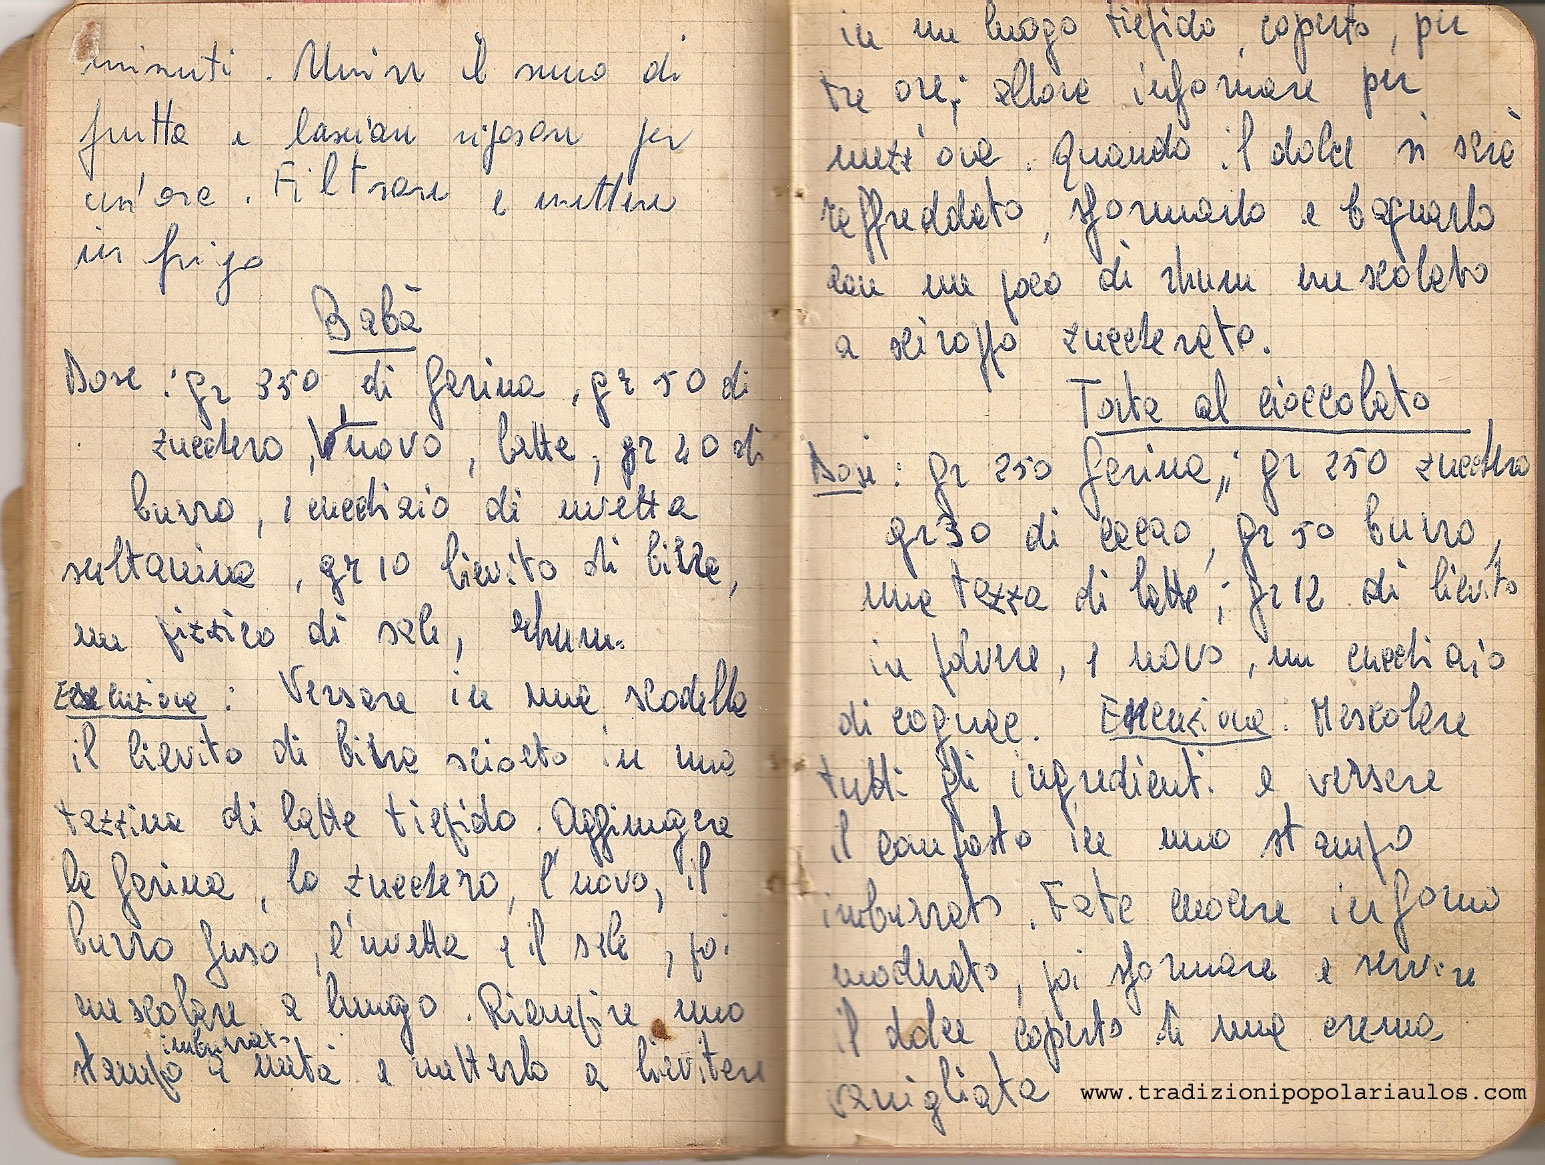 minuti. Unire il succo di
frutta e lasciare riposare per
un'ora. Filtrare e mettere
in frigo
Babà
Dose: gr 350 di farina, gr 50 di
zucchero, 1 uovo, latte, gr 40 di
burro, 1 cucchiaio di uvetta
sultanina, gr 10 lievito di birra,
un pizzico di sale, rhum.
Esecuzione: Versare in una scodella
il lievito di birra sciolto in una
tazzina di latte tiepido. Aggiungere
la farina, lo zucchero, l'uovo, il
burro fuso, l'uvetta e il sale, poi
mescolare a lungo. Riempire uno
imburrato
stampo a metà e metterlo a lievitare
in un luogo tiepido, coperto, per
tre ore; allora infornare per
mezz'ora. Quando il dolce si sarà
raffreddato, sformarlo e bagnarlo
con un poco di rhum mescolato
a sciroppo zuccherato.
Torta al cioccolato
Dosi: gr 250 farina; gr 250 zucchero
gr 30 di cacao, gr 50 burro,
una tazza di latte; gr 12 di lievito
in polvere, 1 uovo, un cucchiaio
di cognac. Esecuzione: Mescolare
tutti gli ingredienti e versare
il composto in uno stampo
imburrato. Fate cuocere in forno
moderato, poi sformare e servire
il dolce coperto di una crema
vanigliata
www.tradizionipopolariaulos.com